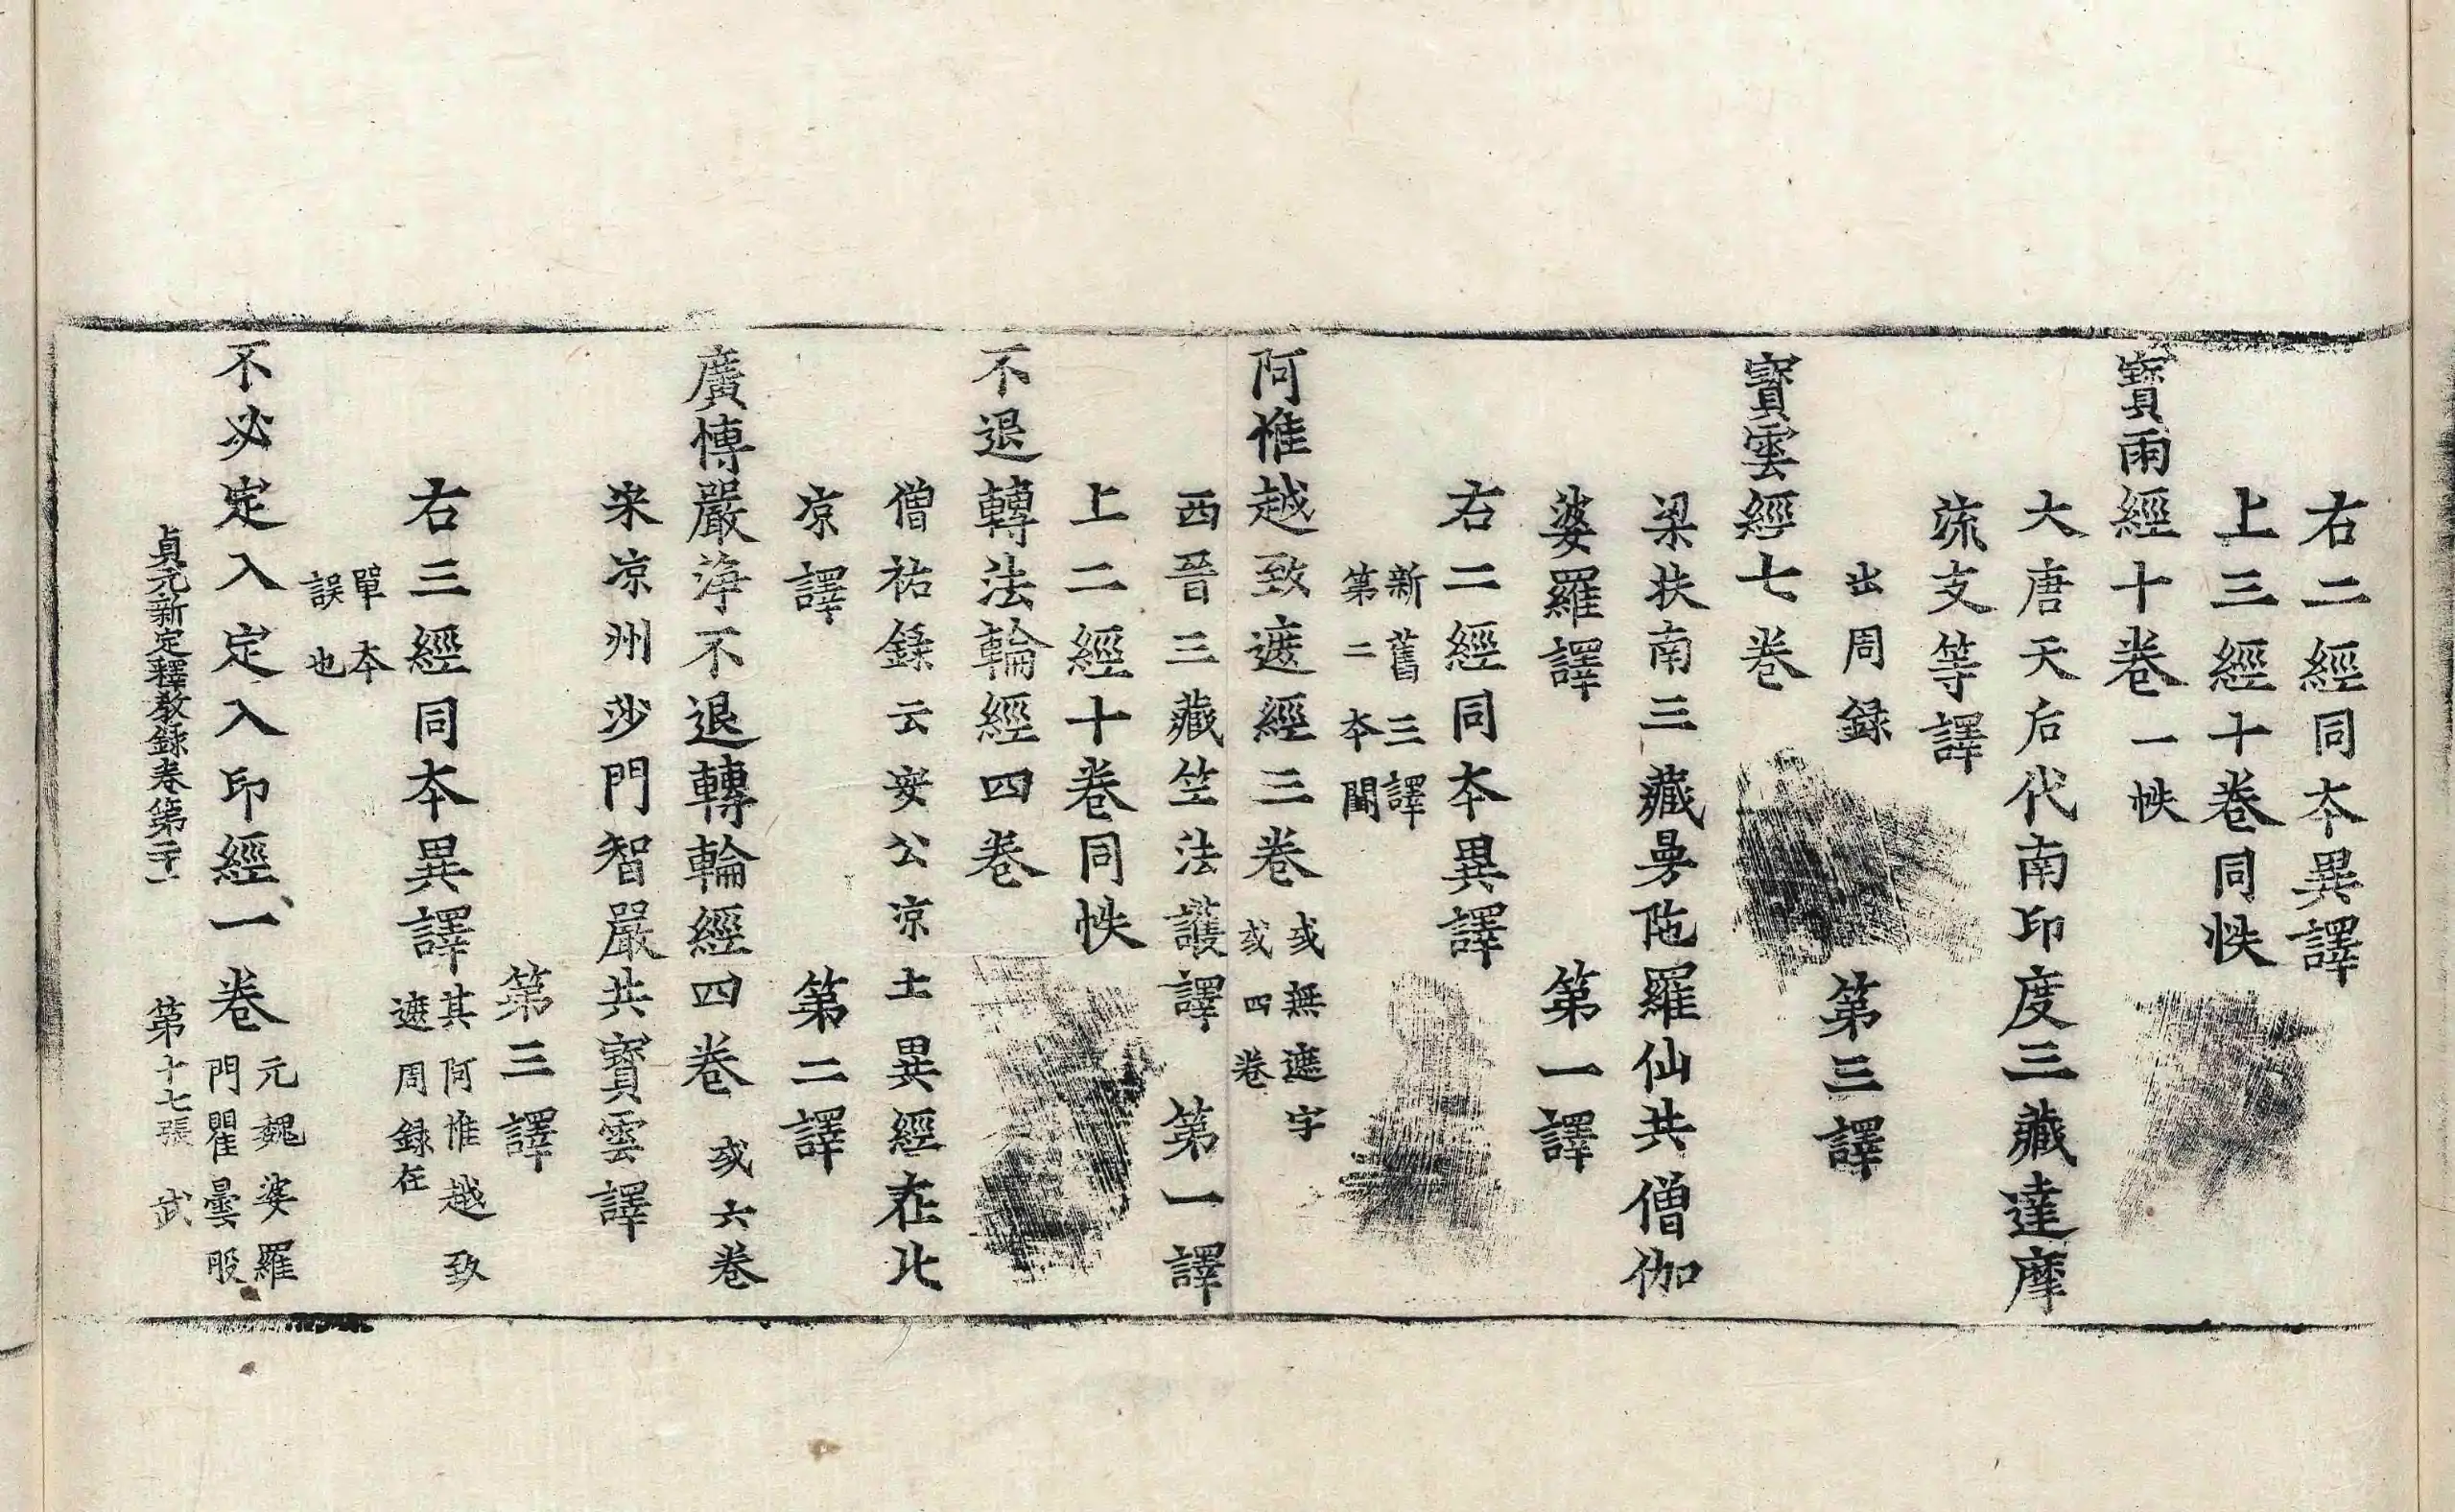 右二經同本異譯
上三經十卷同帙
寶雨經十卷一帙
大唐天后代南印度三藏達摩
流支等譯
出周録　第三譯
寶雲經七卷
梁扶南三藏曼陁羅仙共僧伽
婆羅譯　第一譯
右二經同本異譯
新舊三譯
第二本闕
阿惟越致遮經三卷
或無遮字
或四卷
西晉三藏竺法護譯　第一譯
上二經十卷同帙
不退轉法輪經四卷
僧祐録云安公凉土異經在北
凉譯　第二譯
廣博嚴淨不退轉輪經四卷　或六卷
宋凉州沙門智嚴共寶雲譯
第三譯
右三經同本異譯
其阿惟越致
遮周録在
單本
誤也
不必定入定入印經一卷
元魏婆羅
門瞿曇般
貞元新定釋教録卷第二十一　第十七張　武